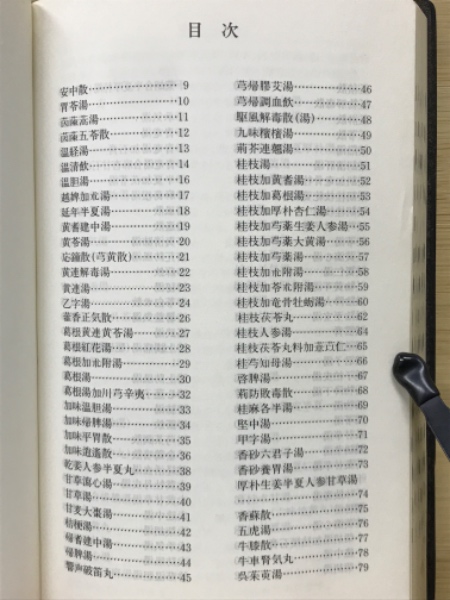 目次
安中散……………………9
胃苓湯……………………10
茵蔯蒿湯…………………11
茵蔯五苓散………………12
温経湯……………………13
温清飲……………………14
温胆湯……………………16
越婢加朮湯………………17
延年半夏湯………………18
黄耆建中湯………………19
黄芩湯……………………20
応鐘散(芎黄散)…………21
黄連解毒湯………………22
黄連湯……………………23
乙字湯……………………24
藿香正気散………………26
葛根黄連黄芩湯…………27
葛根紅花湯………………28
葛根加朮附湯……………29
葛根湯……………………30
葛根湯加川芎辛夷………32
加味温胆湯………………33
加味帰脾湯………………34
加味平胃散………………35
加味逍遙散………………36
乾姜人参半夏丸…………38
甘草瀉心湯………………39
甘草湯……………………40
甘麦大棗湯………………41
桔梗湯……………………42
帰耆建中湯………………43
帰脾湯……………………44
響声破笛丸………………45
芎帰膠艾湯………………46
芎帰調血飲………………47
駆風解毒散(湯)…………48
九味檳榔湯………………49
荊芥連翹湯………………50
桂枝湯……………………51
桂枝加黄耆湯……………52
桂枝加葛根湯……………53
桂枝加厚朴杏仁湯………54
桂枝加芍薬生姜人参湯…55
桂枝加芍薬大黄湯………56
桂枝加芍薬湯……………57
桂枝加朮附湯……………58
桂枝加苓朮附湯…………59
桂枝加竜骨牡蛎湯………60
桂枝茯苓丸………………62
桂枝人参湯………………64
桂枝茯苓丸料加薏苡仁…65
桂芍知母湯………………66
啓脾湯……………………67
荊防敗毒散………………68
桂麻各半湯………………69
堅中湯……………………70
甲字湯……………………71
香砂六君子湯……………72
香砂養胃湯………………73
厚朴生姜半夏人参甘草湯
……………………………74
香蘇散……………………75
五虎湯……………………76
牛膝散……………………77
牛車腎気丸………………78
呉茱萸湯…………………79